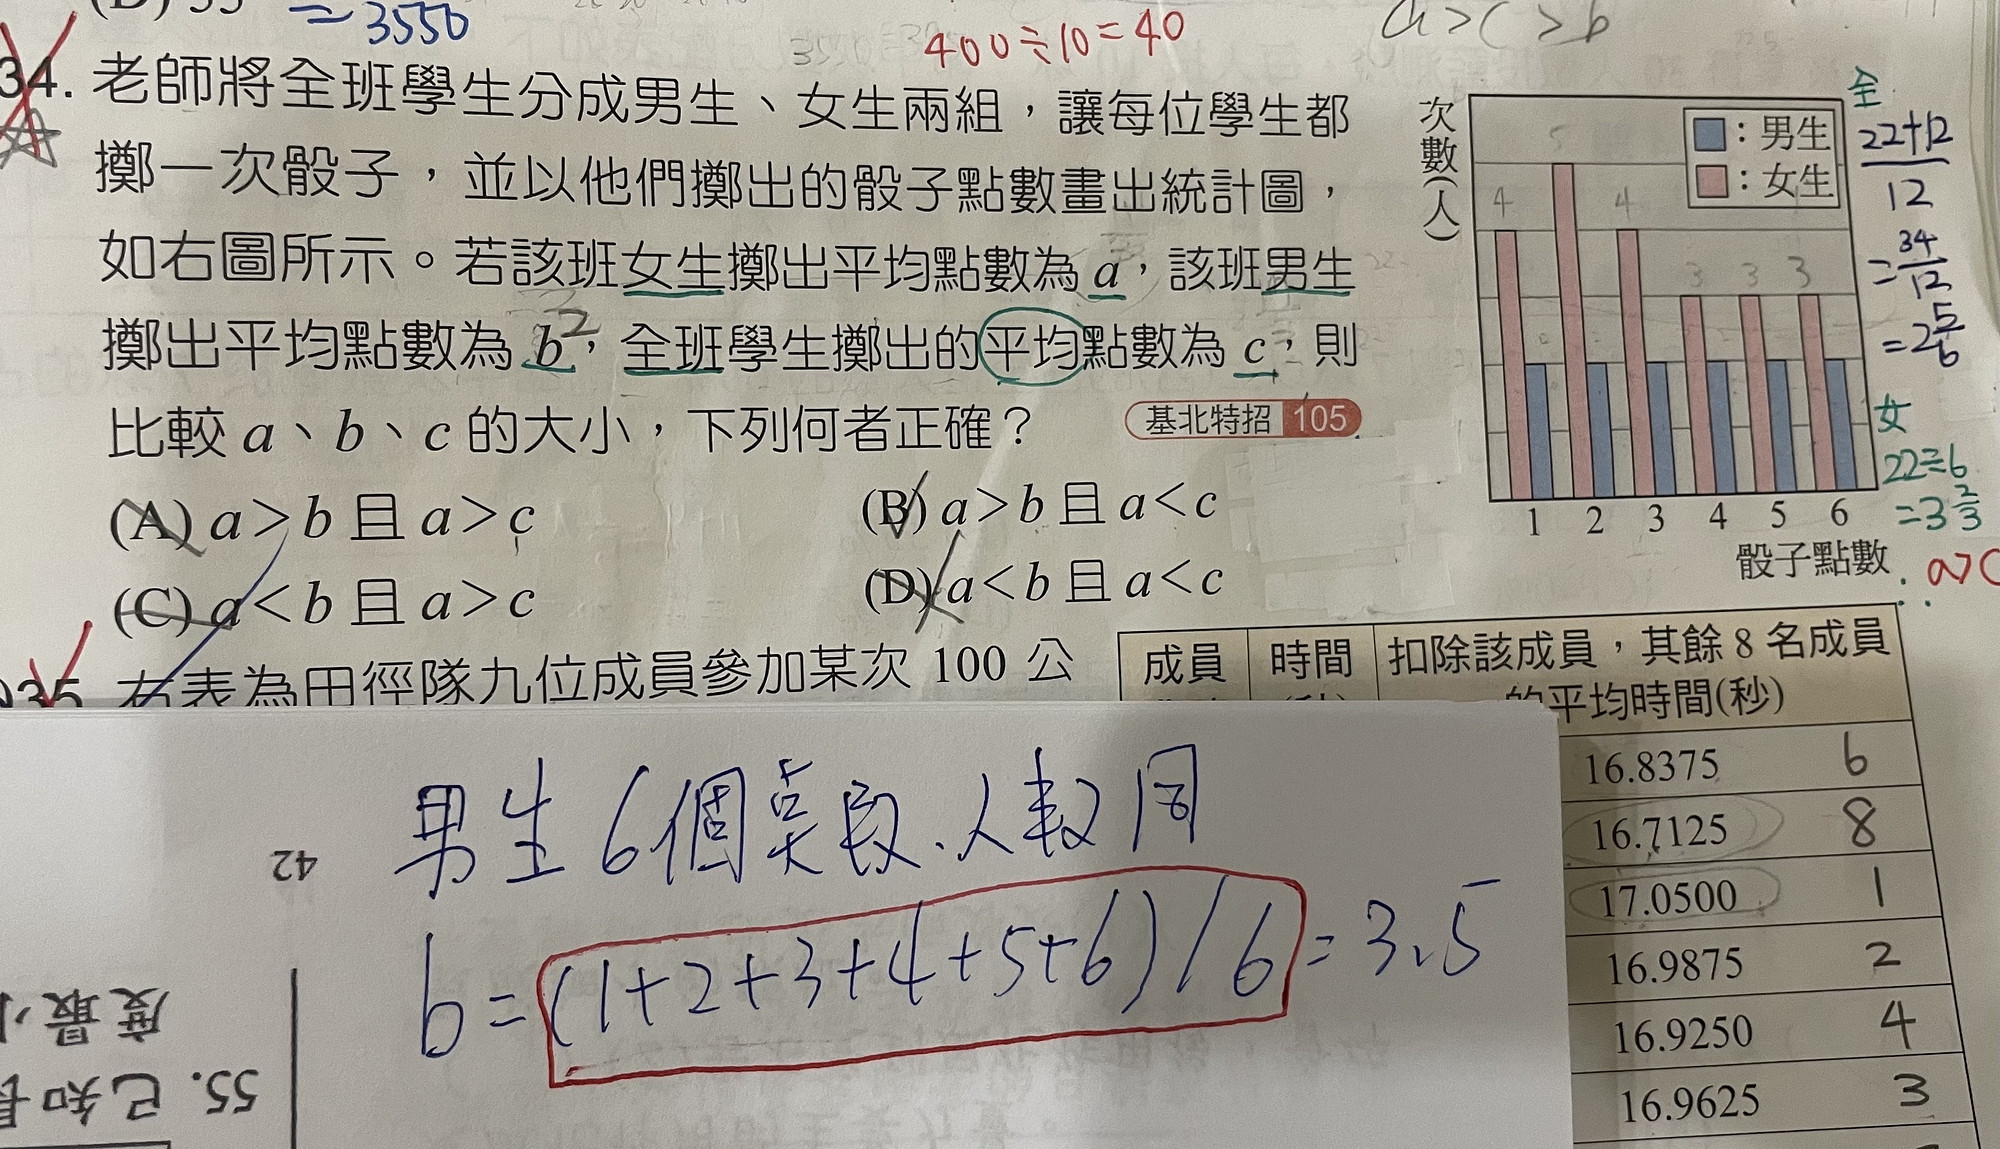 =3550
400÷10=40
a>c>b
34. 老師將全班學生分成男生、女生兩組，讓每位學生都
擲一次骰子，並以他們擲出的骰子點數畫出統計圖，
如右圖所示。若該班女生擲出平均點數為 a，該班男生
擲出平均點數為 b，全班學生擲出的平均點數為 c，則
比較 a、b、c 的大小，下列何者正確？ 基北特招 105
(A) a>b 且 a>c
(B) a>b 且 a<c
(C) a<b 且 a>c
(D) a<b 且 a<c
次數(人)
：男生
：女生
4 5 4 3 3 3
1 2 3 4 5 6
骰子點數
全
22+12
12
=34/12
=2 5/6
女
22÷6
=3 2/3
∴a>c
35. 右表為田徑隊九位成員參加某次 100 公
成員 時間 扣除該成員，其餘 8 名成員
的平均時間(秒)
16.8375 6
16.7125 8
17.0500 1
16.9875 2
16.9250 4
16.9625 3
男生6個點數、人數同
b=(1+2+3+4+5+6)/6=3.5
42
度最小
55. 已知